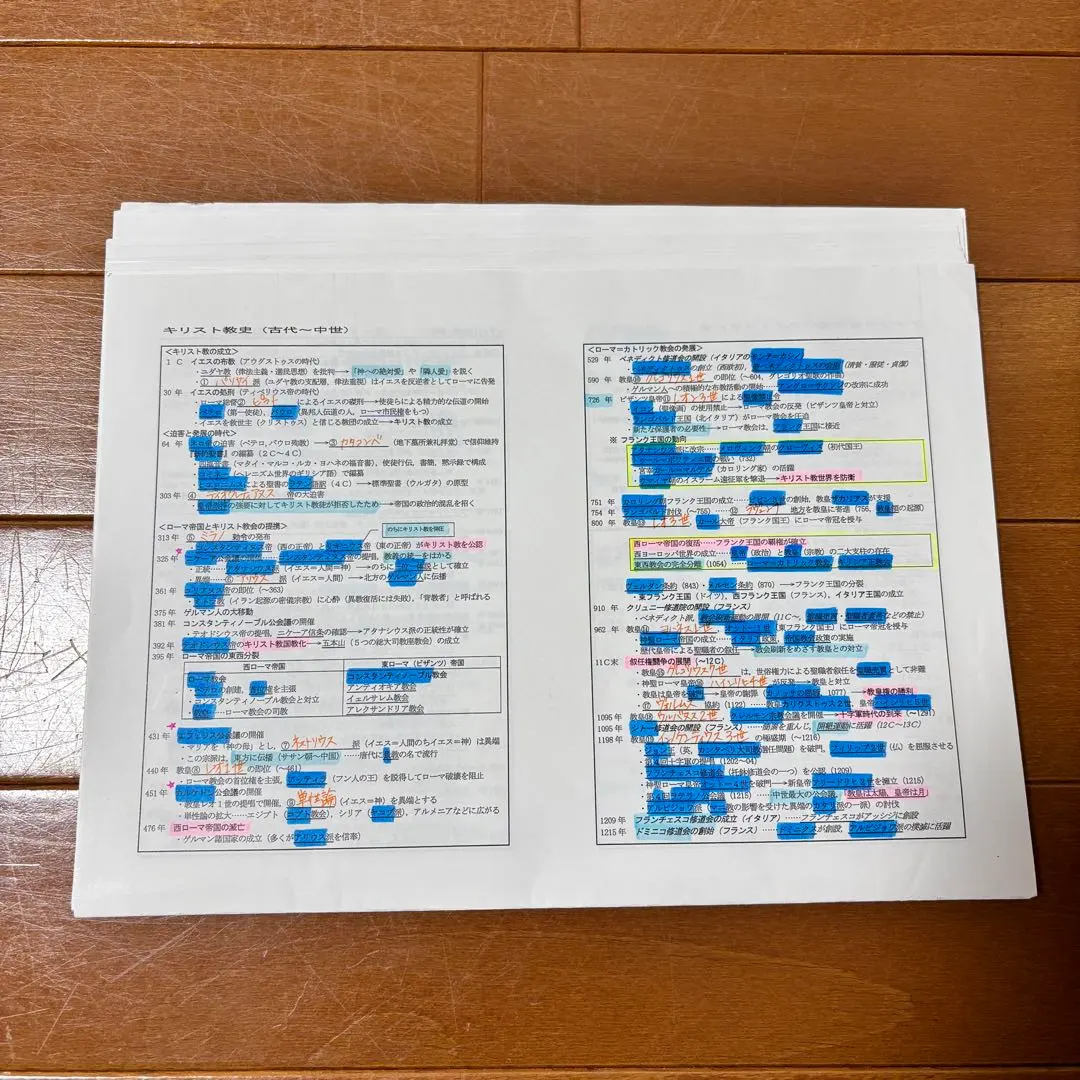 キリスト教史（古代～中世）
＜キリスト教の成立＞
1C イエスの布教（アウグストゥスの時代）
・ユダヤ教（律法主義・選民思想）を批判→「神への絶対愛」や「隣人愛」を説く
・① パリサイ 派（ユダヤ教の支配層，律法重視）はイエスを反逆者としてローマに告発
30年 イエスの処刑（ティベリウス帝の時代）
・ローマ総督② ピラト によるイエスの磔刑→使徒らによる精力的な伝道の開始
ペテロ（第一使徒），パウロ（異邦人伝道の人，ローマ市民権をもつ）
・イエスを救世主（クリストス）と信じる教団の成立→キリスト教の成立
＜迫害と発展の時代＞
64年 ネロ帝の迫害（ペテロ，パウロ殉教）→③ カタコンベ （地下墓所兼礼拝堂）で信仰維持
『新約聖書』の編纂（2C～4C）
（マタイ・マルコ・ルカ・ヨハネの福音書），使徒行伝，書簡，黙示録で構成
（ヘレニズム世界のギリシア語）で編纂
による聖書のラテン語訳（4C）→標準聖書（ウルガタ）の原型
303年 ④ ディオクレティアヌス 帝の大迫害
の強要に対してキリスト教徒が拒否したため→帝国の政治的混乱を招く
＜ローマ帝国とキリスト教会の提携＞
のちにキリスト教を弾圧
313年 ⑤ ミラノ 勅令の発布
コンスタンティヌス帝（西の正帝）と帝（東の正帝）がキリスト教を公認
325年 ニケーア公会議の開催 の提唱，教義の統一をはかる
・正統…アタナシウス派（イエス＝神）→のちに三位一体説として確立
・異端…⑥ アリウス 派（イエス＝人間）→北方のゲルマン人に伝播
361年 ユリアヌス帝の即位（～363）
・ミトラ教（イラン起源の密儀宗教）に心酔（異教復活には失敗），「背教者」と呼ばれる
375年 ゲルマン人の大移動
381年 コンスタンティノープル公会議の開催
・テオドシウス帝の提唱，ニケーア信条の確認→アタナシウス派の正統性が確立
392年 テオドシウス帝のキリスト教国教化→五本山（5つの総大司教座教会）の成立
395年 ローマ帝国の東西分裂
西ローマ帝国 東ローマ（ビザンツ）帝国
ローマ教会 コンスタンティノープル教会
・ペテロの創建，首位権を主張 アンティオキア教会
・コンスタンティノープル教会と対立 イェルサレム教会
・教皇……ローマ教会の司教 アレクサンドリア教会
431年 エフェソス公会議の開催
・マリアを「神の母」とし，⑦ ネストリウス 派（イエス＝人間のちイエス＝神）は異端
・この宗派は，東方に伝播（ササン朝～中国）……唐代に景教の名で流行
440年 教皇⑧ レオ1世 の即位（～461）
・ローマ教会の首位権を主張，アッティラ（フン人の王）を説得してローマ破壊を阻止
451年 カルケドン公会議の開催
・教皇レオ1世の提唱で開催，⑨ 単性論 （イエス＝神）を異端とする
・単性論の拡大……エジプト（コプト教会），シリア（ヤコブ派），アルメニアなどに広がる
476年 西ローマ帝国の滅亡
・ゲルマン諸国家の成立（多くがアリウス派を信奉）
＜ローマ＝カトリック教会の発展＞
529年 ベネディクト修道会の開設（イタリアのモンテ＝カシノ）
の創立（西欧初）， （清貧・服従・貞潔）
590年 教皇⑩ グレゴリウス1世 の即位（～604，グレゴリオ聖歌の作曲）
・ゲルマン人への積極的な布教活動の開始……アングロ＝サクソンの改宗に成功
726年 ビザンツ皇帝⑪ レオン3世 による聖像禁止令
・イコン（聖像画）の使用禁止→ローマ教会の反発（ビザンツ皇帝と対立）
・ランゴバルド王国（北イタリア）がローマ教会を圧迫
・新たな保護者の必要性→ローマ教会は，フランク王国に接近
※ フランク王国の動向
アタナシウス派に改宗……メロヴィング朝のクローヴィス（初代国王）
の戦い（732）
・宮宰カール＝マルテル（カロリング家）の活躍
ウマイヤ朝のイスラーム遠征軍を撃退→キリスト教世界を防衛
751年 カロリング朝フランク王国の成立……ピピン3世の創始，教皇ザカリアスが支援
754年 ランゴバルド討伐（～755）……⑫ ラヴェンナ 地方を教皇に寄進（756，教皇領の起源）
800年 教皇⑬ レオ3世 カール大帝（フランク国王）にローマ帝冠を授与
西ローマ帝国の復活……フランク王国の覇権が確立
西ヨーロッパ世界の成立……皇帝（政治）と教皇（宗教）の二大支柱の存在
東西教会の完全分離（1054）……ローマ＝カトリック教会，ギリシア正教会
ヴェルダン条約（843）・メルセン条約（870）→フランク王国の分裂
・東フランク王国（ドイツ），西フランク王国（フランス），イタリア王国の成立
910年 クリュニー修道院の開設（フランス）
・ベネディクト派，教会刷新運動の展開（11C～，聖職売買・聖職者妻帯などの禁止）
962年 教皇⑭ ヨハネス12世 オットー1世（東フランク国王）にローマ帝冠を授与
・神聖ローマ帝国の成立……イタリア政策，帝国教会政策の実施
・歴代皇帝による聖職者の叙任→教会刷新をめざす教皇との対立
11C末 叙任権闘争の展開（～12C）
・教皇⑮ グレゴリウス7世 は，世俗権力による聖職者叙任を聖職売買として非難
・神聖ローマ皇帝⑯ ハインリヒ4世 が反発→教皇と対立
・教皇は皇帝を破門→皇帝の謝罪（カノッサの屈辱，1077）→教皇権の勝利
・⑰ ヴォルムス 協約（1122）……教皇カリクストゥス2世，皇帝ハインリヒ5世
1095年 教皇⑱ ウルバヌス2世 クレルモン宗教会議を開催→十字軍時代の到来（～1291）
1098年 シトー修道会の開設（フランス）……開墾を重んじ，開墾運動に活躍（12C～13C）
1198年 教皇⑲ インノケンティウス3世 の極盛期（～1216）
・ジョン王（英，カンタベリ大司教選任問題）を破門，フィリップ2世（仏）を屈服させる
・第4回十字軍の提唱（1202～04）
・フランチェスコ修道会（托鉢修道会の一つ）を公認（1209）
・神聖ローマ皇帝オットー4世を破門→新皇帝フリードリヒ2世を擁立（1215）
・第4回ラテラノ公会議（1215）……中世最大の公会議，「教皇は太陽，皇帝は月」
・アルビジョワ派（マニ教の影響を受けた異端のカタリ派の一派）の討伐
1209年 フランチェスコ修道会の成立（イタリア）……フランチェスコがアッシジに創設
1215年 ドミニコ修道会の創始（フランス）……ドミニクスが創設，アルビジョワ派の撲滅に活躍